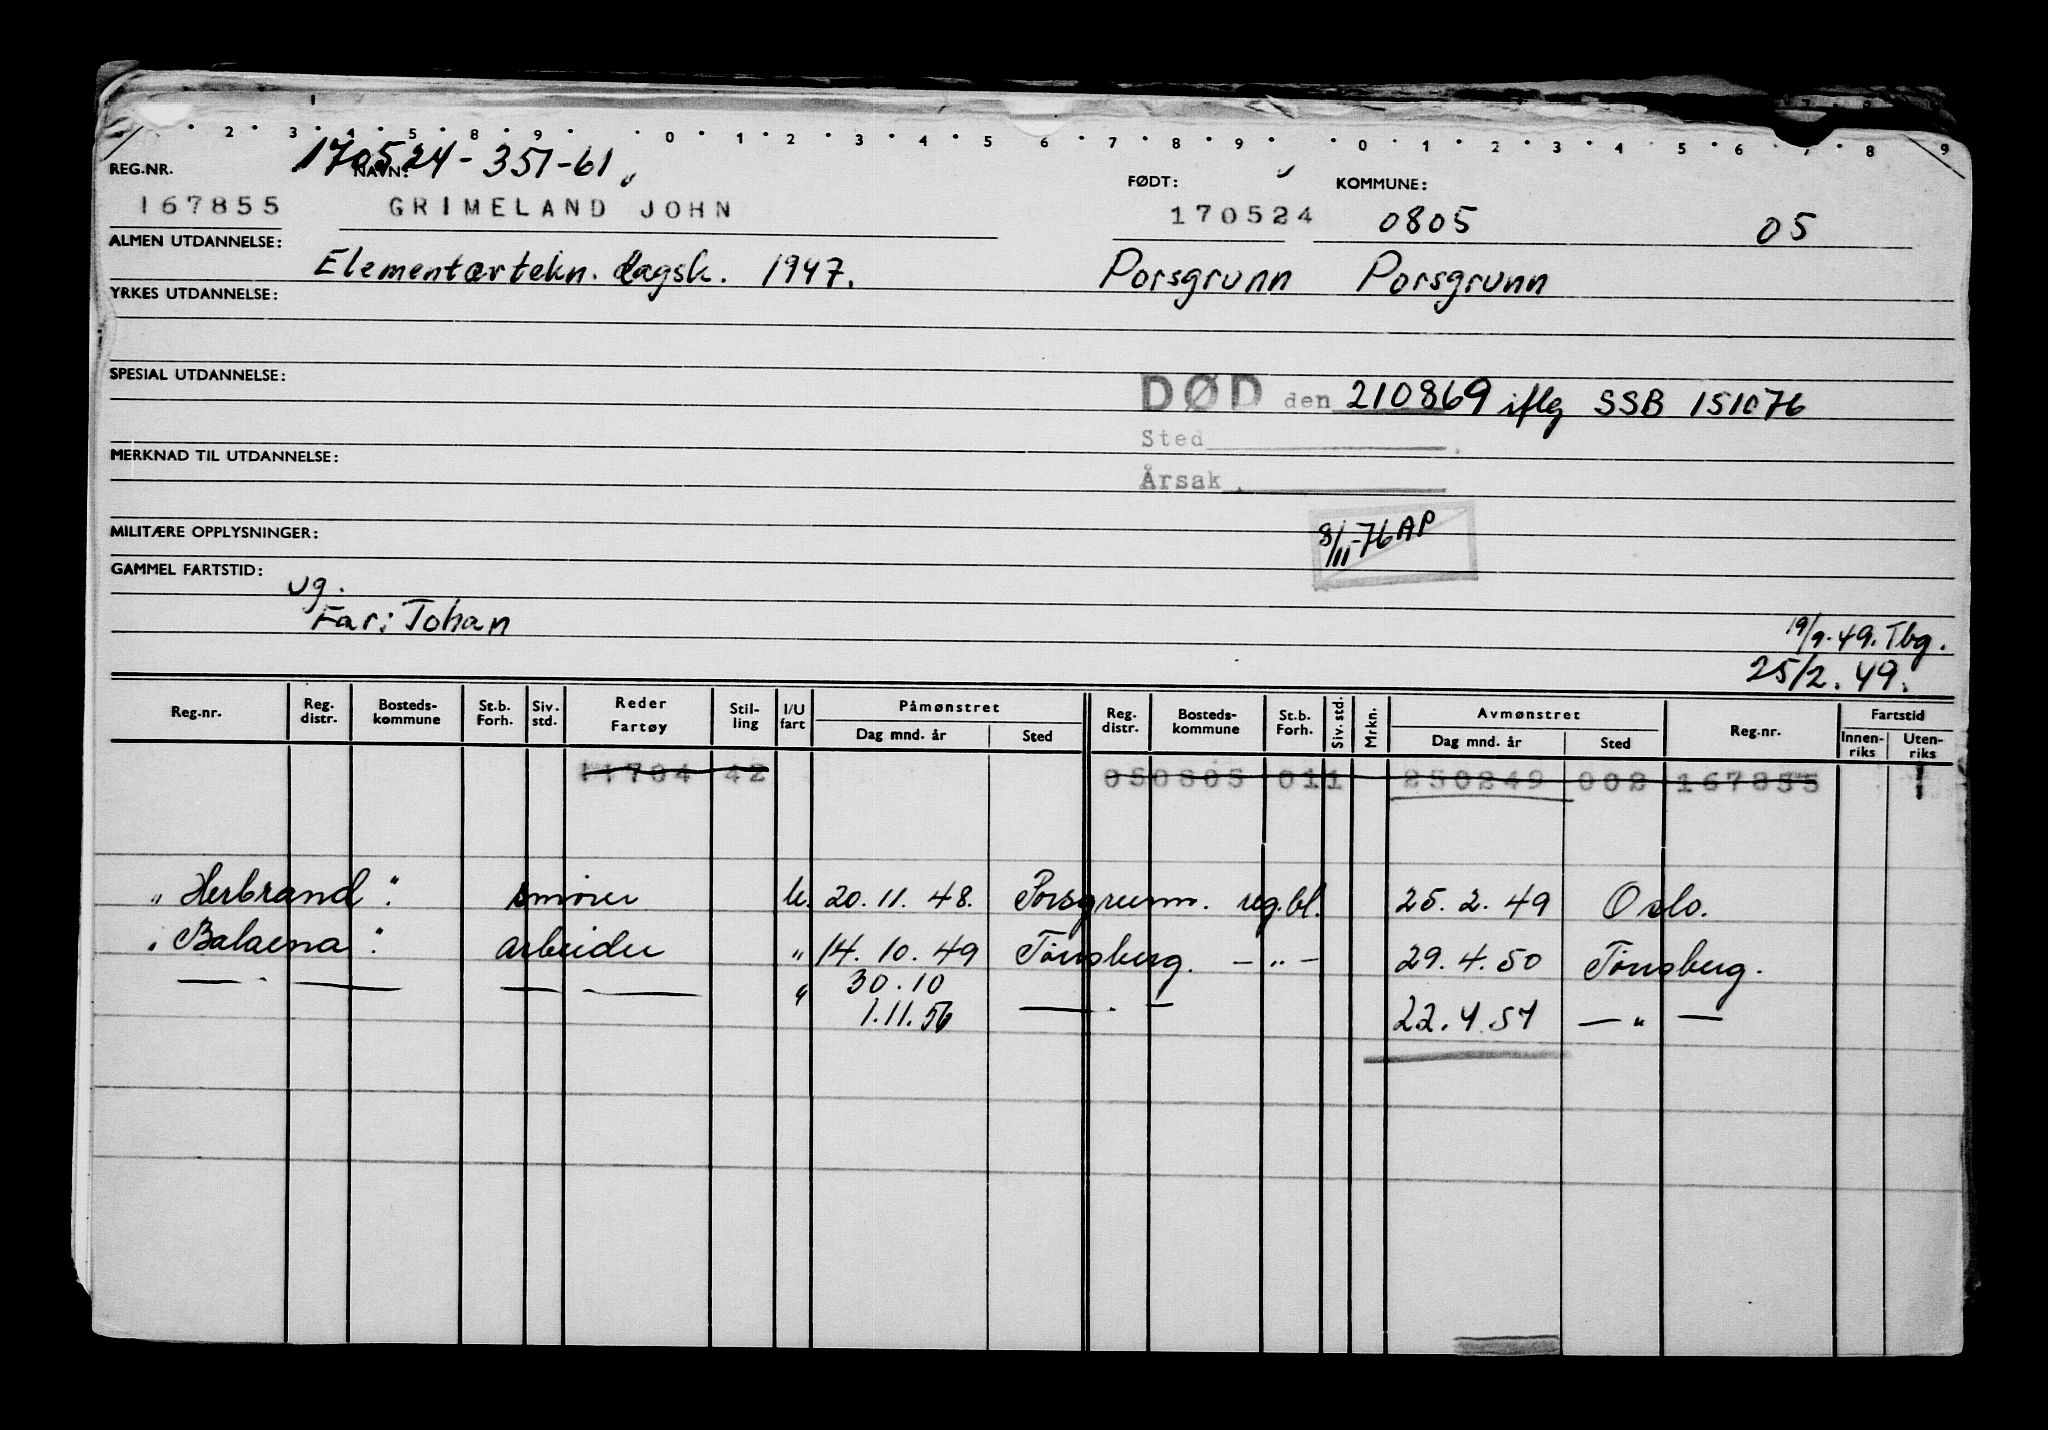 2 3 4 5 8 9 0 1 2 3 4 5 6 7 8 9 0 1 2 3 4 5 6 7 8 9
170524-351-61
REG.NR. NAVN: FØDT: KOMMUNE:
167855 GRIMELAND JOHN 170524 0805 05
ALMEN UTDANNELSE: Elementærtekn. dagsk. 1947. Porsgrunn Porsgrunn
YRKES UTDANNELSE:
SPESIAL UTDANNELSE:
DØD den 210869 iflg SSB 151076
Sted
MERKNAD TIL UTDANNELSE:
Årsak
MILITÆRE OPPLYSNINGER: 8/11-76 AP
GAMMEL FARTSTID:
ug.
Far: Johan
19/9.49. Tbg.
25/2.49.
Reg.nr. Reg. distr. Bosteds-kommune St.b. Forh. Siv. std. Reder Fartøy Stil-ling I/U fart Påmønstret Dag mnd. år Sted Reg. distr. Bosteds-kommune St.b. Forh. Siv. std. Mrkn. Avmønstret Dag mnd. år Sted Reg.nr. Fartstid Innen-riks Uten-riks
11704 42 050805 011 250249 002 167855
" Herbrand " smører u. 20.11.48. Porsgrunn. reg.bl. 25.2.49 Oslo.
" Balaena " arbeider " 14.10.49 Tønsberg. - " - 29.4.50 Tønsberg.
— " — — " — " 30.10
1.11.56 — " — 22.4.57 — " —